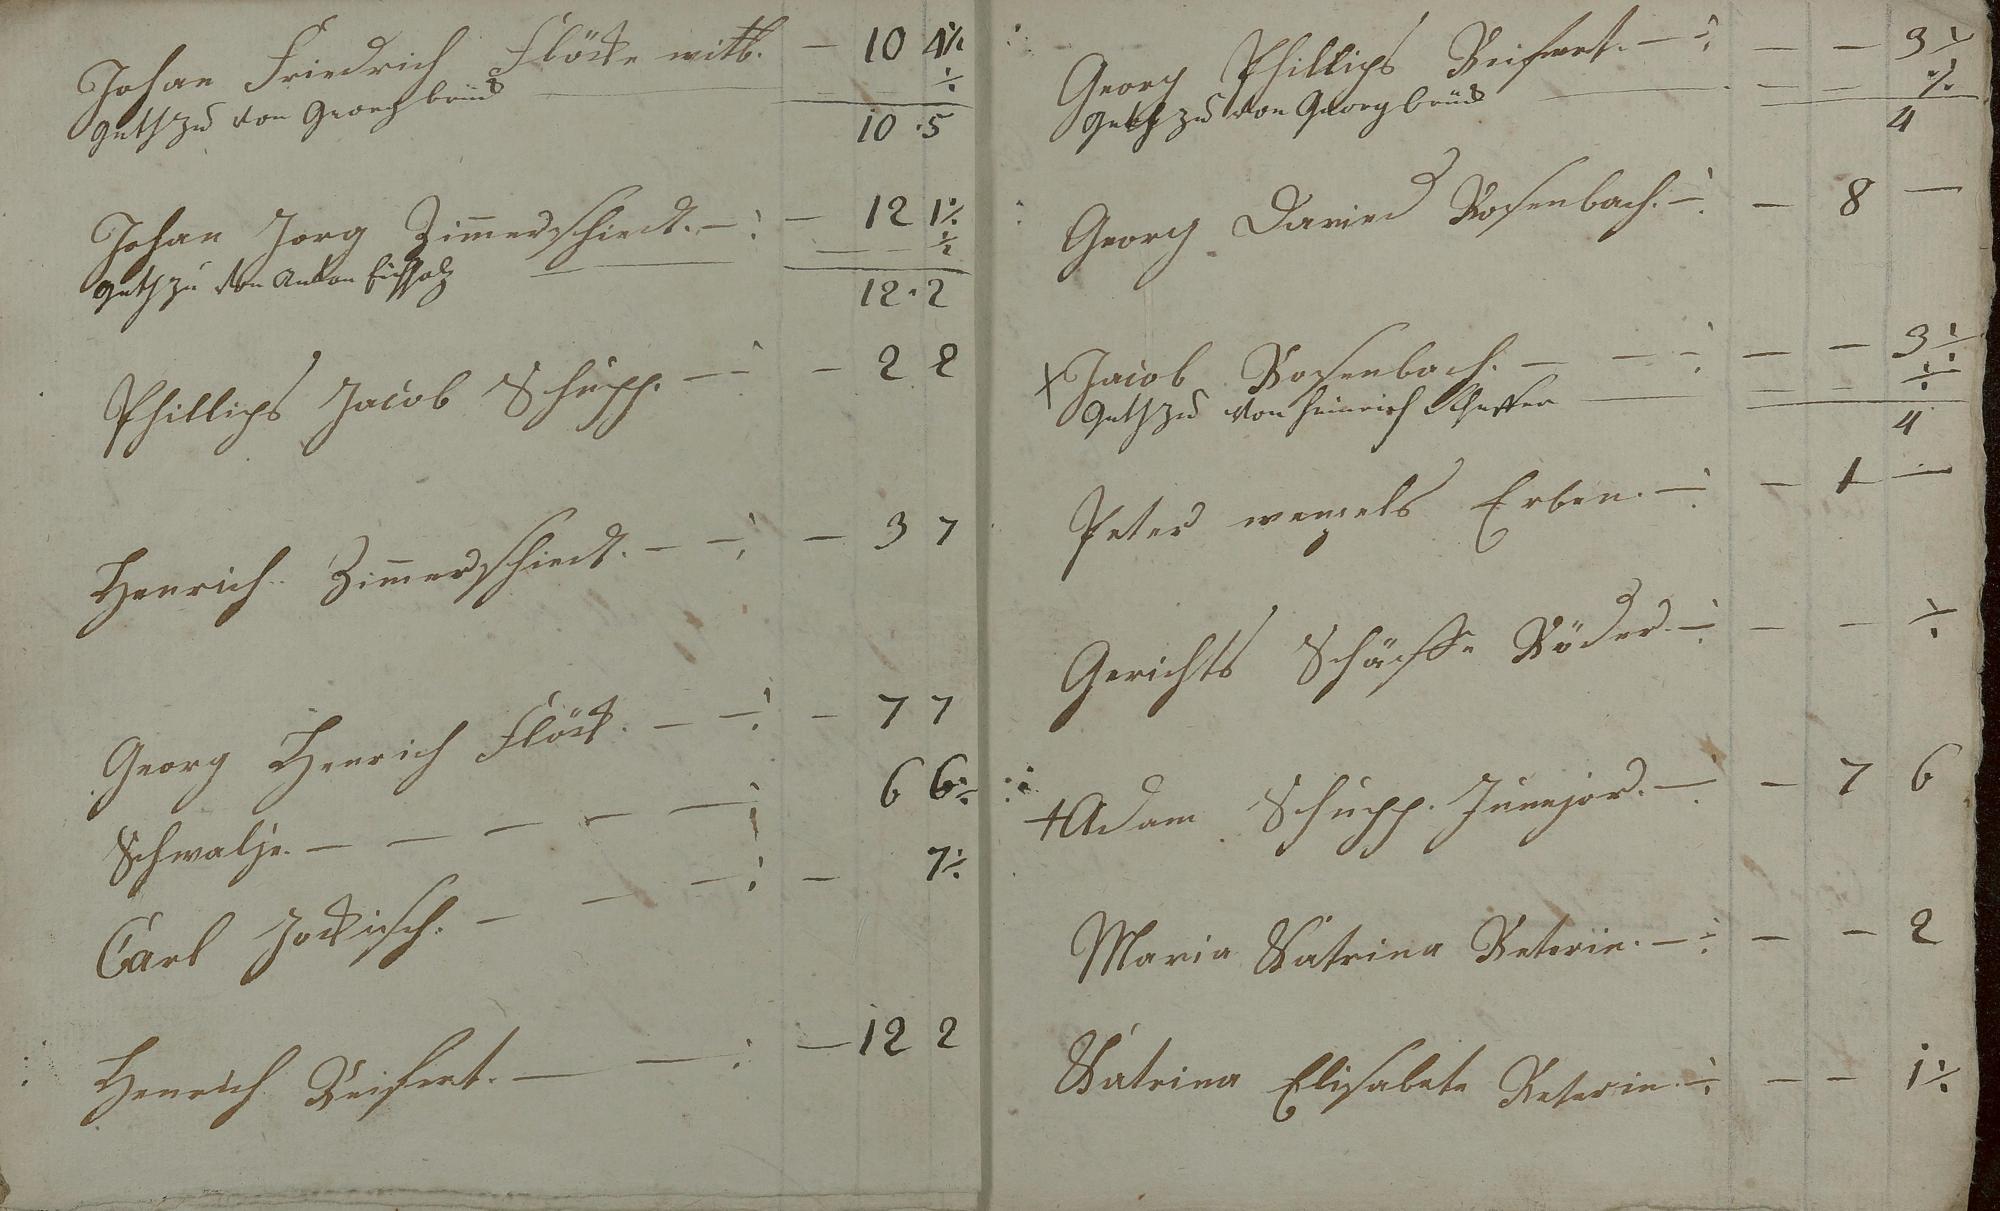 Johan Friedrich Flöck witb. — 10 4½
geth zu von Georg brüd — ½
10 . 5
Johan Jorg Zimmerschiedt. — 12 1½
geth zu von Anton Eichholz — ½
12 . 2
Phillips Jacob Schupp. — 2 2
Henrich Zimmerschiedt. — 3 7
Georg Henrich Flöck. — 7 7
Schwalje. — 6 6½
Carl Jockisch. — 7½
Henrich Reifert. — 12 2
Georg Phillips Reifert. — 3½
geth zu von Georg brüd — ½
4
Georg Davied Rosenbach. — 8 —
Jacob Rosenbach. — 3½
geth zu von Heinrich Scheffer — ½
4
Peter wenzels Erben. — 1 —
Gerichts Schäffe Röder — ½
Adam Schupp. Junejor. — 7 6
Maria Katrina Reterin. — 2
Katrina Elisabeta Reterin — 1½